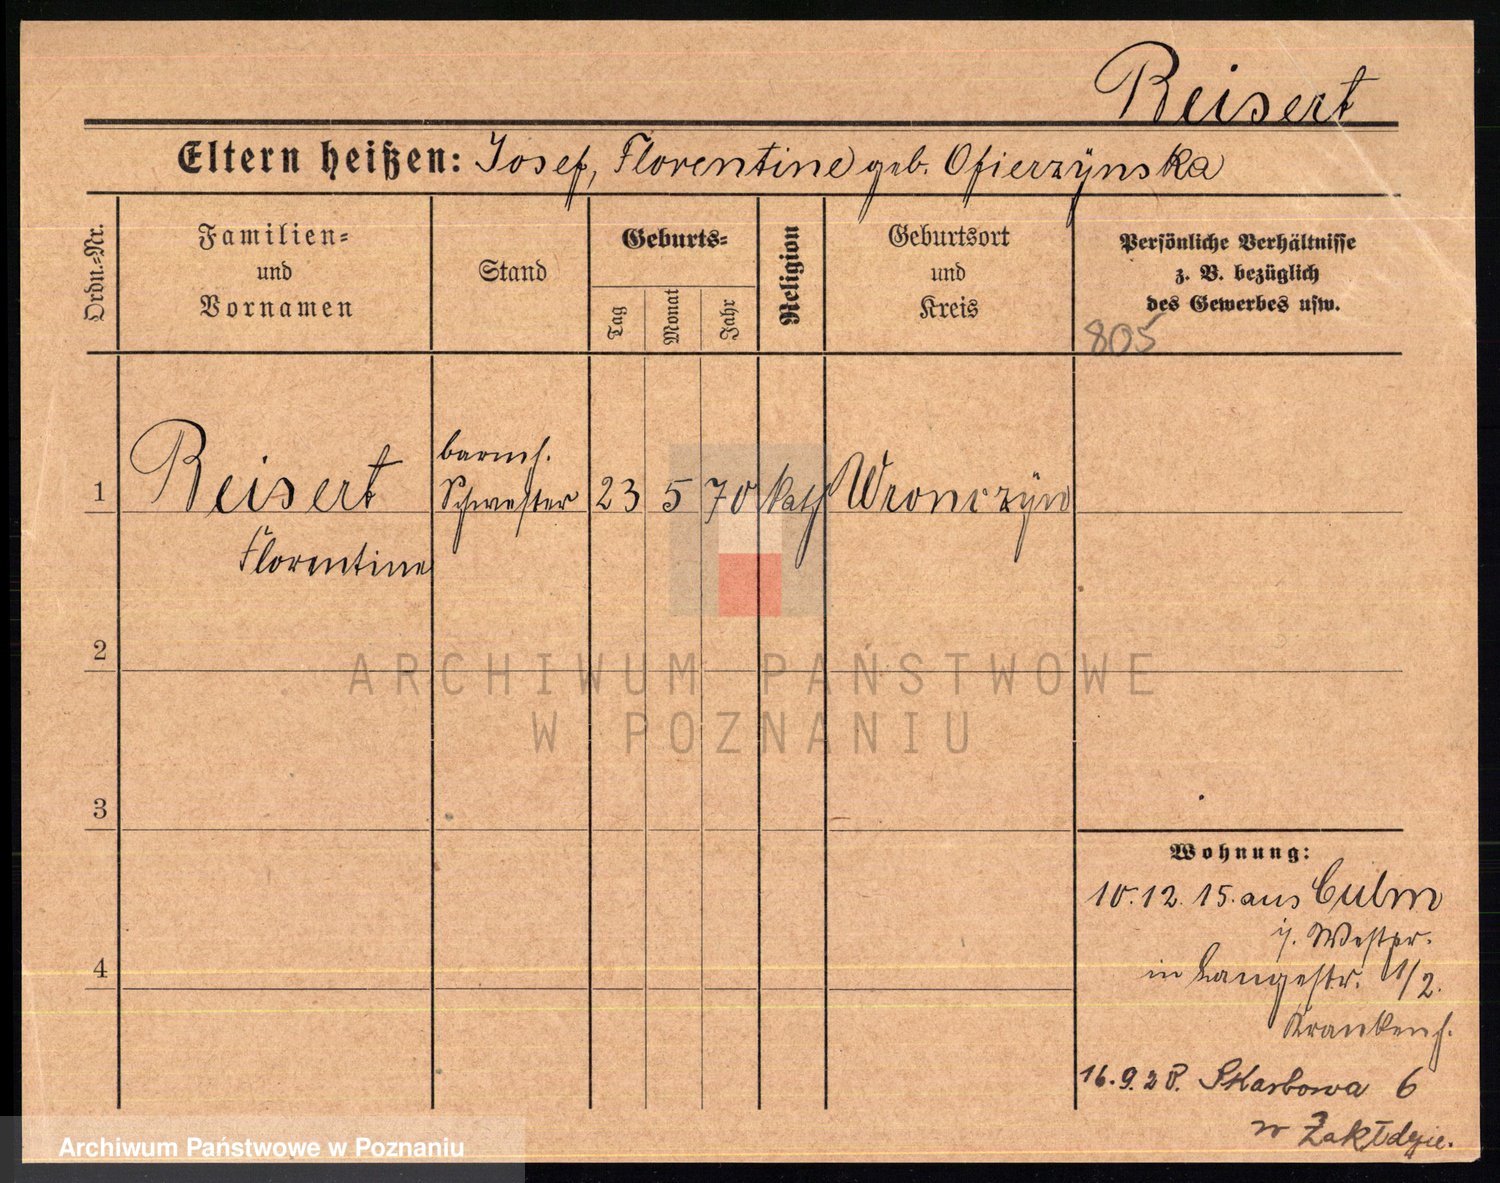 Reisert
Eltern heißen: Josef, Florentine geb. Ofierzÿnska
Ordn.-Nr.
Familien-
und
Vornamen
Stand
Geburts-
Tag
Monat
Jahr
Religion
Geburtsort
und
Kreis
Persönliche Verhältnisse
z. B. bezüglich
des Gewerbes usw.
805
1
Reisert
Florentine
barmh.
Schwester
23
5
70
kath
Wronczÿn
2
3
4
Wohnung:
10.12.15. aus Culm
i. Westpr.
in Langestr. 1/2.
Krankenh.
16.9.28. Skarbowa 6
w Zakłdzie.
ARCHIWUM PAŃSTWOWE
W POZNANIU
Archiwum Państwowe w Poznaniu